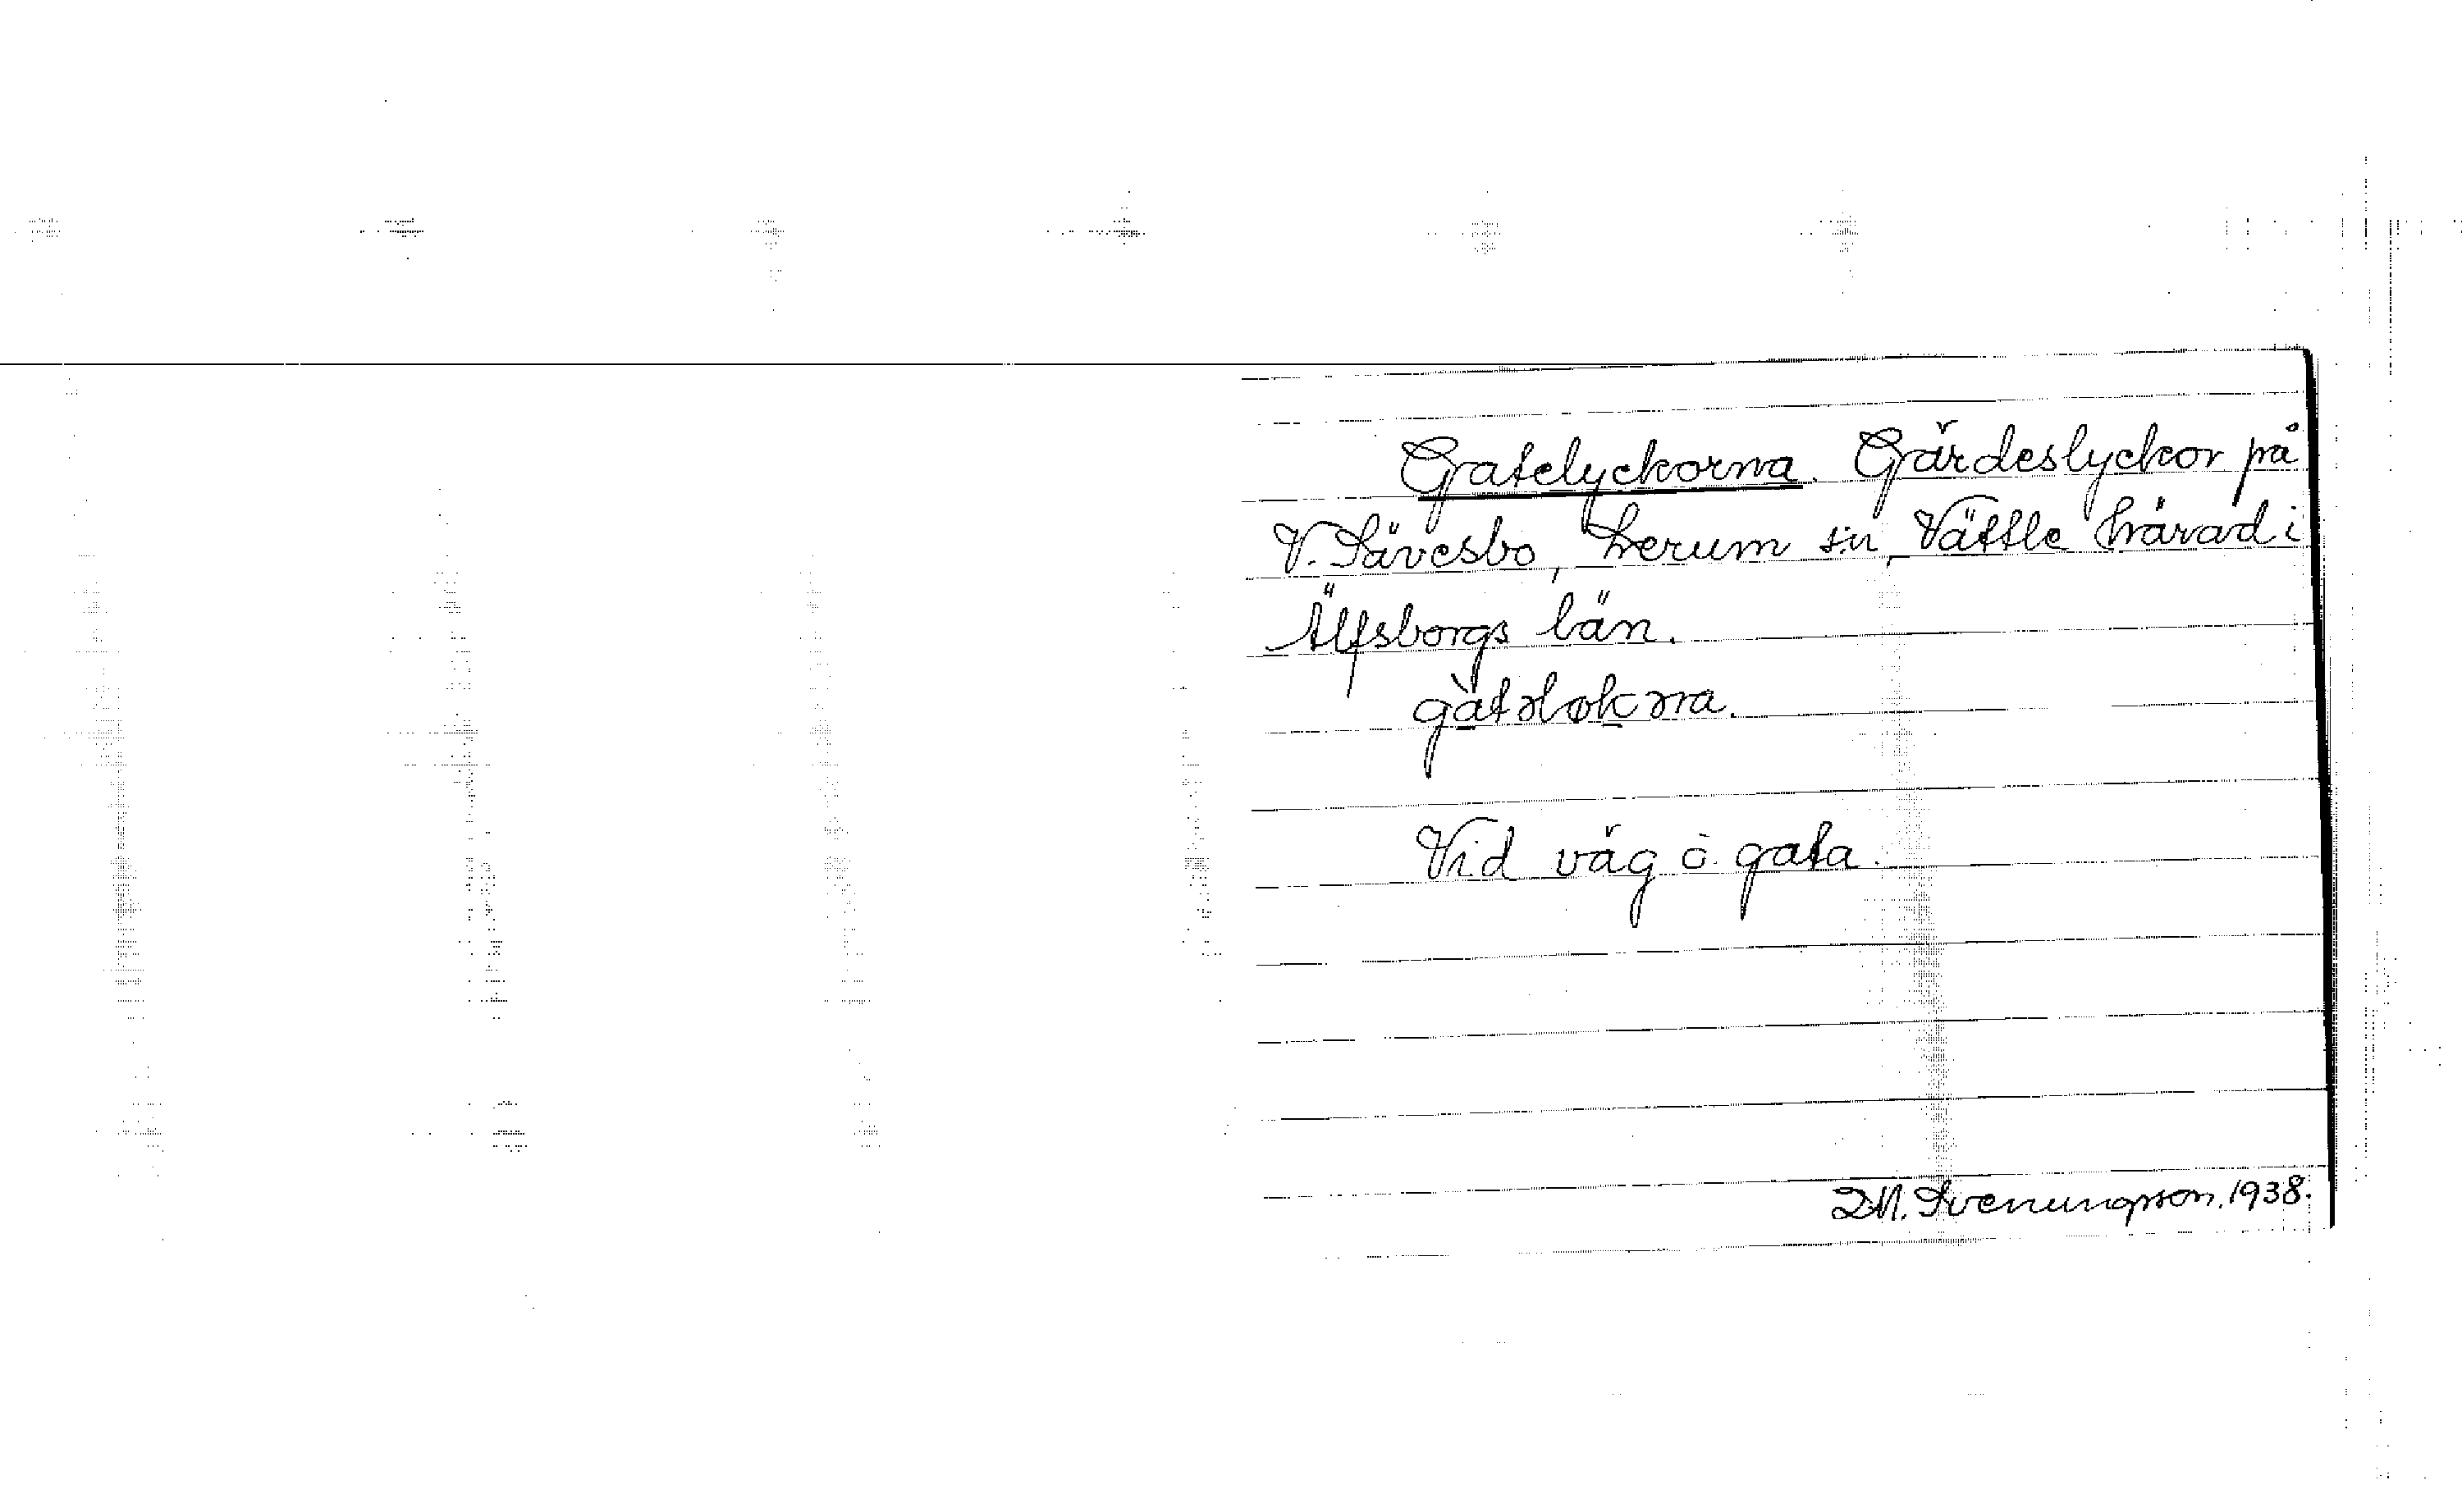 Gatelyckorna. Gärdeslyckor på
V. Sävesbo, Lerum sn, Vättle härad i
Älfsborgs län.
gàtəløkəna.
Vid väg o. gata.
D.N. Svenungsson. 1938.